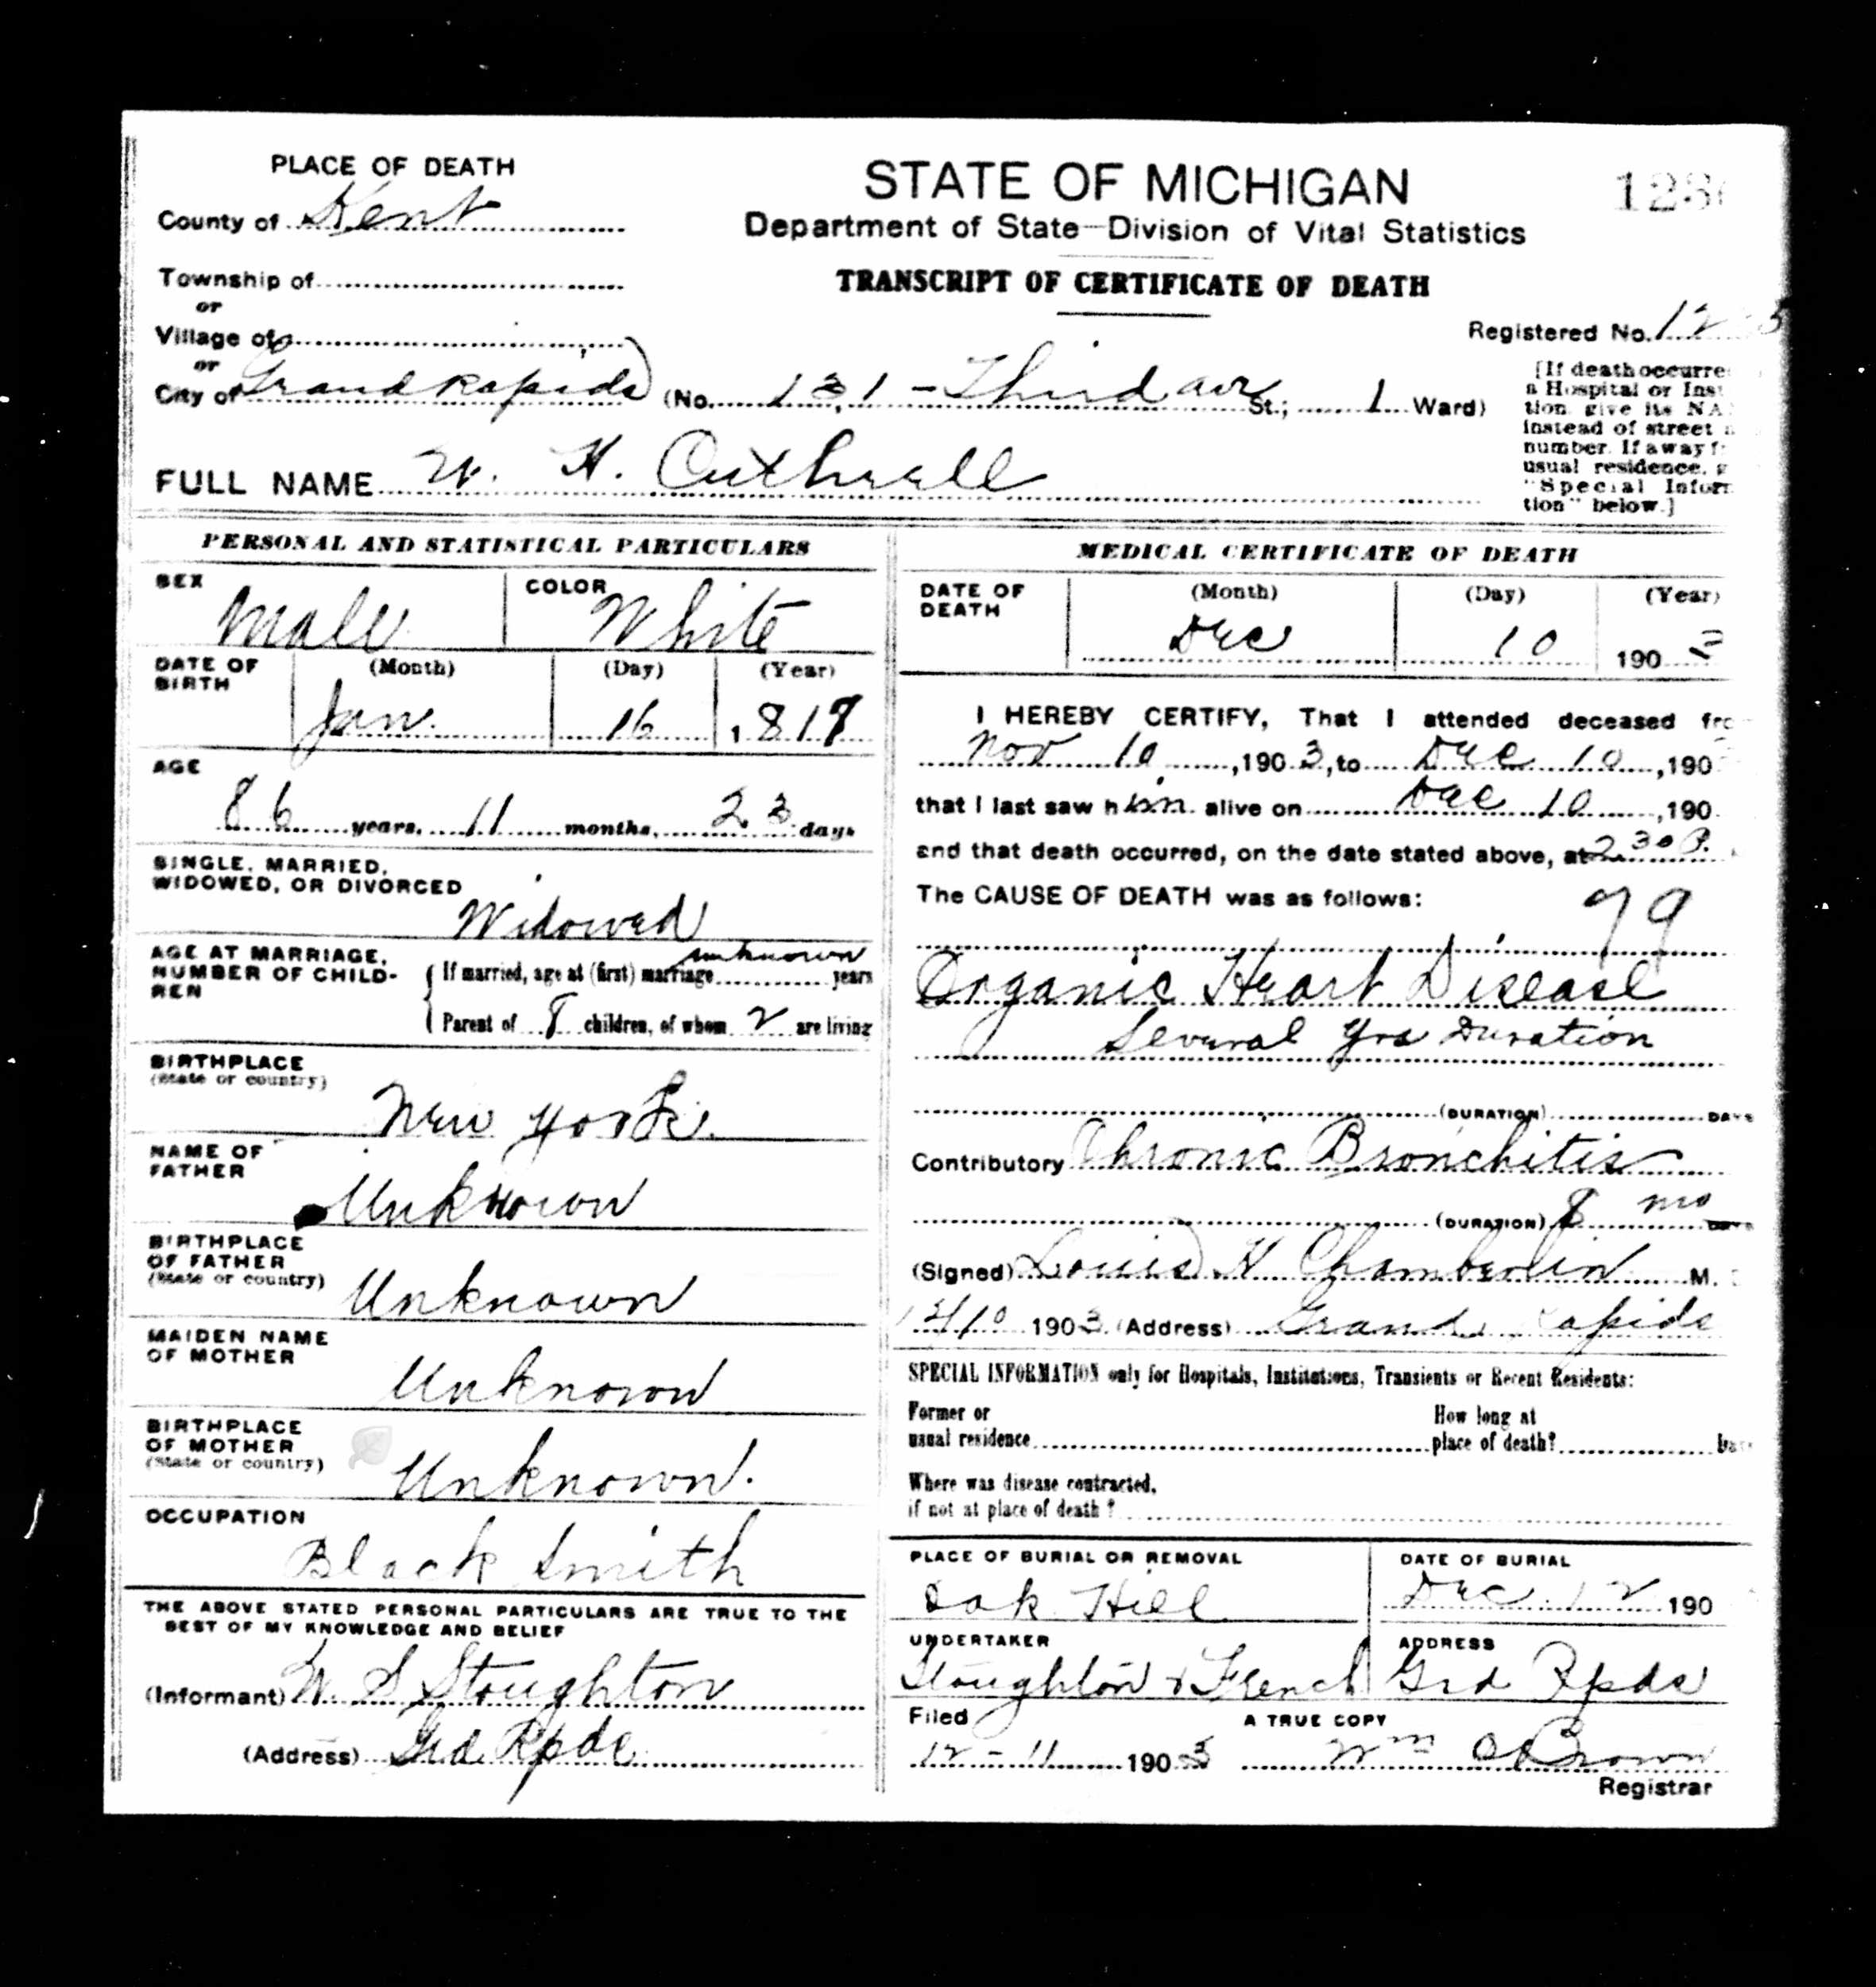 PLACE OF DEATH
County of Kent
Township of
or
Village of
or
City of Grand Rapids
STATE OF MICHIGAN
Department of State—Division of Vital Statistics
TRANSCRIPT OF CERTIFICATE OF DEATH
Registered No.
(No. 131 - Third ave St.; 1 Ward)
[If death occurre
a Hospital or Inst
tion give its NA
instead of street
number. If away f
usual residence,
"Special Inform
tion" below.]
FULL NAME W. H. Cuthrell
PERSONAL AND STATISTICAL PARTICULARS
SEX Male
COLOR White
DATE OF BIRTH
(Month) (Day) (Year)
Jan. 16 181
AGE
86 years, 11 months, 23 days
SINGLE, MARRIED,
WIDOWED, OR DIVORCED
Widowed
AGE AT MARRIAGE,
NUMBER OF CHILD-
REN
If married, age at (first) marriage unknown years
Parent of 8 children, of whom 2 are living
BIRTHPLACE
(State or country)
New York.
NAME OF
FATHER
Unknown
BIRTHPLACE
OF FATHER
(State or country)
Unknown
MAIDEN NAME
OF MOTHER
Unknown
BIRTHPLACE
OF MOTHER
(State or country)
Unknown.
OCCUPATION
Black Smith
THE ABOVE STATED PERSONAL PARTICULARS ARE TRUE TO THE
BEST OF MY KNOWLEDGE AND BELIEF
(Informant) W. S Stoughton
(Address) Grd. Rpds
MEDICAL CERTIFICATE OF DEATH
DATE OF DEATH
(Month) (Day) (Year)
Dec 10 1903
I HEREBY CERTIFY, That I attended deceased fro
Nov 10, 1903, to Dec 10, 190
that I last saw him alive on Dec 10, 190
and that death occurred, on the date stated above, at 2 30 P.
The CAUSE OF DEATH was as follows:
79
Organic Heart Disease
Several yrs Duration
(DURATION) DAYS
Contributory Chronic Bronchitis
(DURATION) 8 mo DAYS
(Signed) Louis H Chamberlin M.
12/10 1903 (Address) Grand Rapids
SPECIAL INFORMATION only for Hospitals, Institutions, Transients or Recent Residents:
Former or
usual residence
How long at
place of death?
Where was disease contracted,
if not at place of death?
PLACE OF BURIAL OR REMOVAL
Oak Hill
DATE OF BURIAL
Dec 12 190
UNDERTAKER
Stoughton & French
ADDRESS
Grd Rpds
Filed
12-11 1903
A TRUE COPY
Wm Brown
Registrar